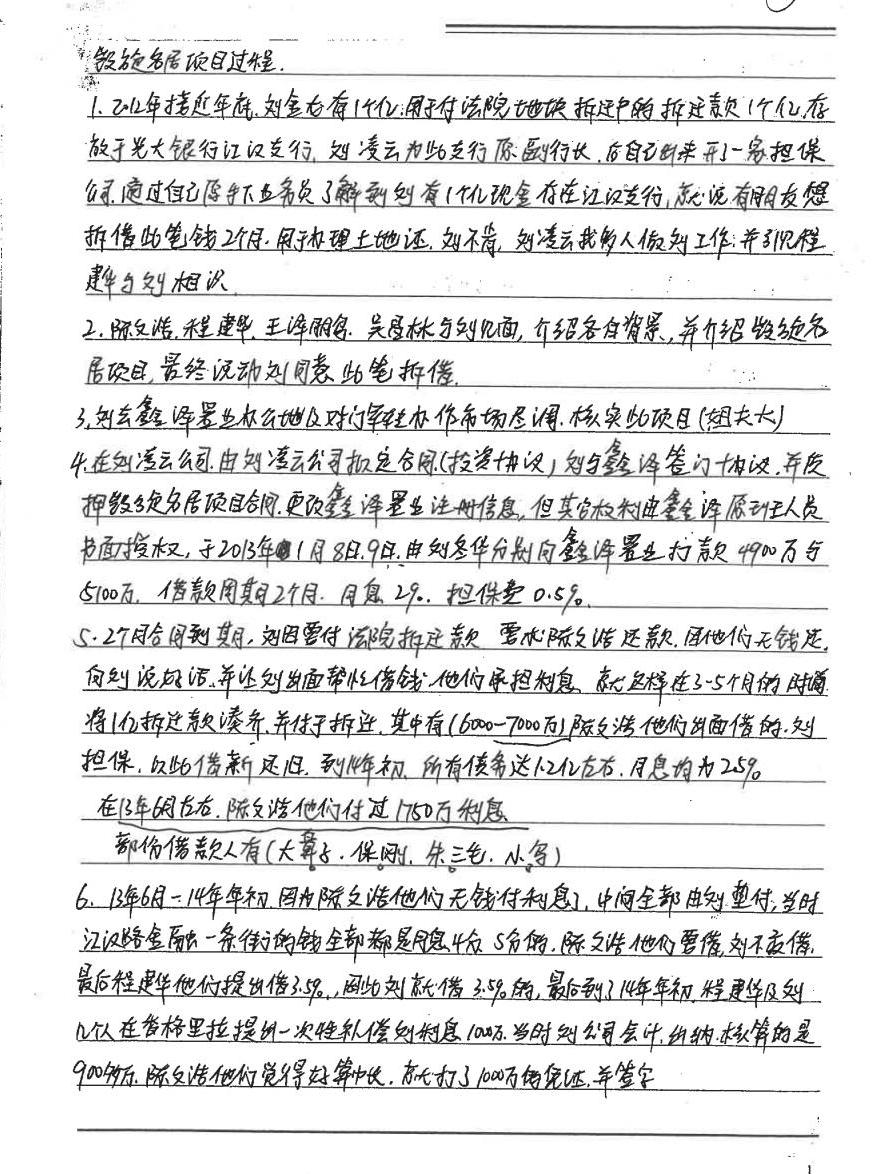 绽名居项目过程.
1. 2012年接近年底.刘金右有1个亿.用于付法院地块拆迁户的拆迁款1个亿.存
放于光大银行江汉支行,刘凌云为此支行原副行长.后自己出来开了一家担保
公司.通过自己原手下业务员了解到刘有1个亿现金存在江汉支行,就说有朋友想
拆借此笔钱2个月.用于办理土地证.刘不肯,刘凌云找多人做刘工作.并引见程
建华与刘相识.
2.陈文浩.程建华.王泽朋.吴昌林与刘见面,介绍各自背景,并介绍绽名
居项目,最终说动刘同意此笔拆借.
3,刘去鑫泽置业办公地及对门军转办作市场尽调.核实此项目(姐夫大)
4.在刘凌云公司.由刘凌云公司拟定合同.(投资协议)刘与鑫泽签订协议.并质
押绽名居项目合同.更改鑫泽置业注册信息,但其它权利由鑫泽原班人员
书面授权,于2013年1月8日.9日.由刘冬华分别向鑫泽置业打款4900万与
5100万.借款周期2个月.月息2%.担保费0.5%.
5.2个月合同到期,刘因要付法院拆迁款 要求陈文浩还款.因他们无钱还.
向刘说好话.并让刘出面帮忙借钱.他们承担利息.就这样在3-5个月的时间
将1亿拆迁款凑齐.并付于拆迁.其中有(6000-7000万)陈文浩他们出面借的.刘
担保.以此借新还旧.到14年初.所有债务达1.2亿左右.月息均为2.5%
在13年6月左右.陈文浩他们付过1750万利息.
部份借款人有(大鼻子.保刚.朱三毛.小)
6. 13年6月-14年年初.因为陈文浩他们无钱付利息了,中间全部由刘垫付,当时
江汉路金融一条街的钱全部都是月息4分5分的.陈文浩他们要借,刘不敢借.
最后程建华他们提出借3.5%.,因此刘就借3.5%的,最后到了14年年初.程建华及刘
几个人在香格里拉提出一次性补偿刘利息1000万.当时刘公司会计.出纳.核算的是
900多万.陈文浩他们觉得好算些.就打了1000万的凭证.并签字
1